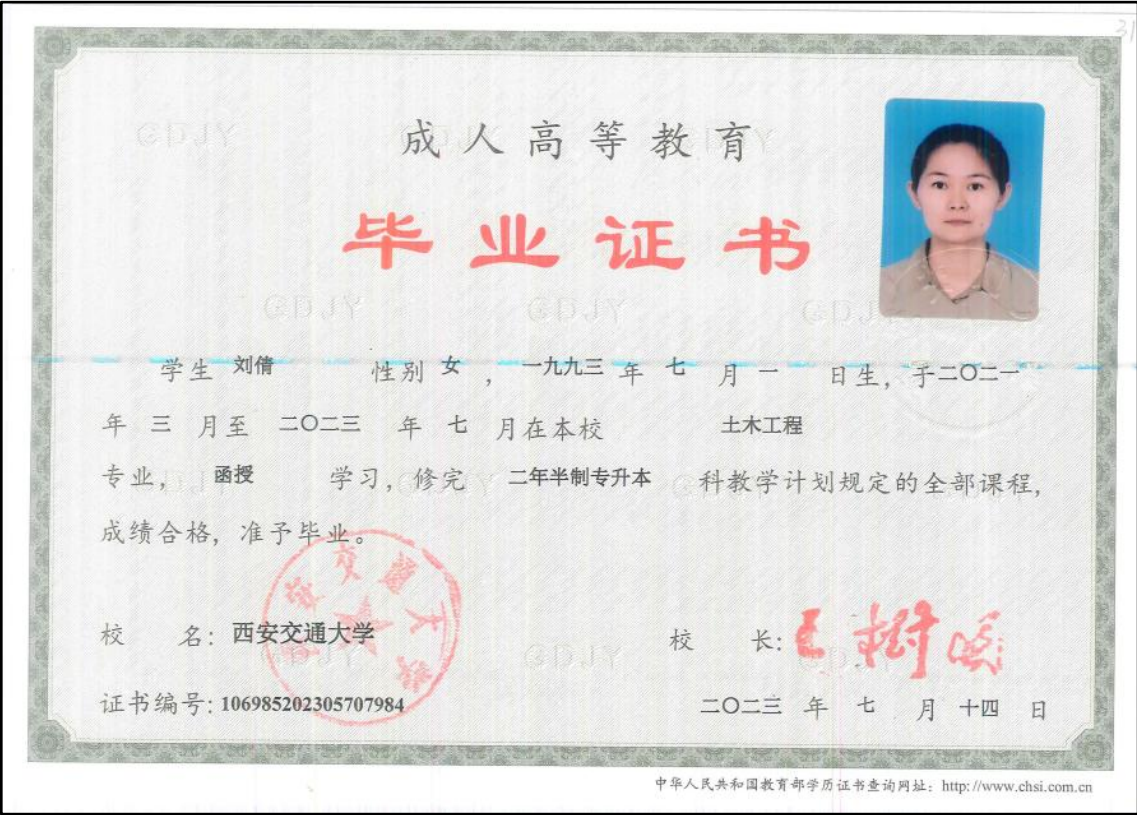 31
成人高等教育
毕业证书
学生 刘倩 性别 女 , 一九九三 年 七 月 一 日生, 于二〇二一
年 三 月至 二〇二三 年 七 月在本校 土木工程
专业, 函授 学习, 修完 二年半制专升本 科教学计划规定的全部课程,
成绩合格, 准予毕业。
西安交通大学
校 名: 西安交通大学 校 长: 王树国
证书编号: 106985202305707984 二〇二三 年 七 月 十四 日
中华人民共和国教育部学历证书查询网址: http://www.chsi.com.cn